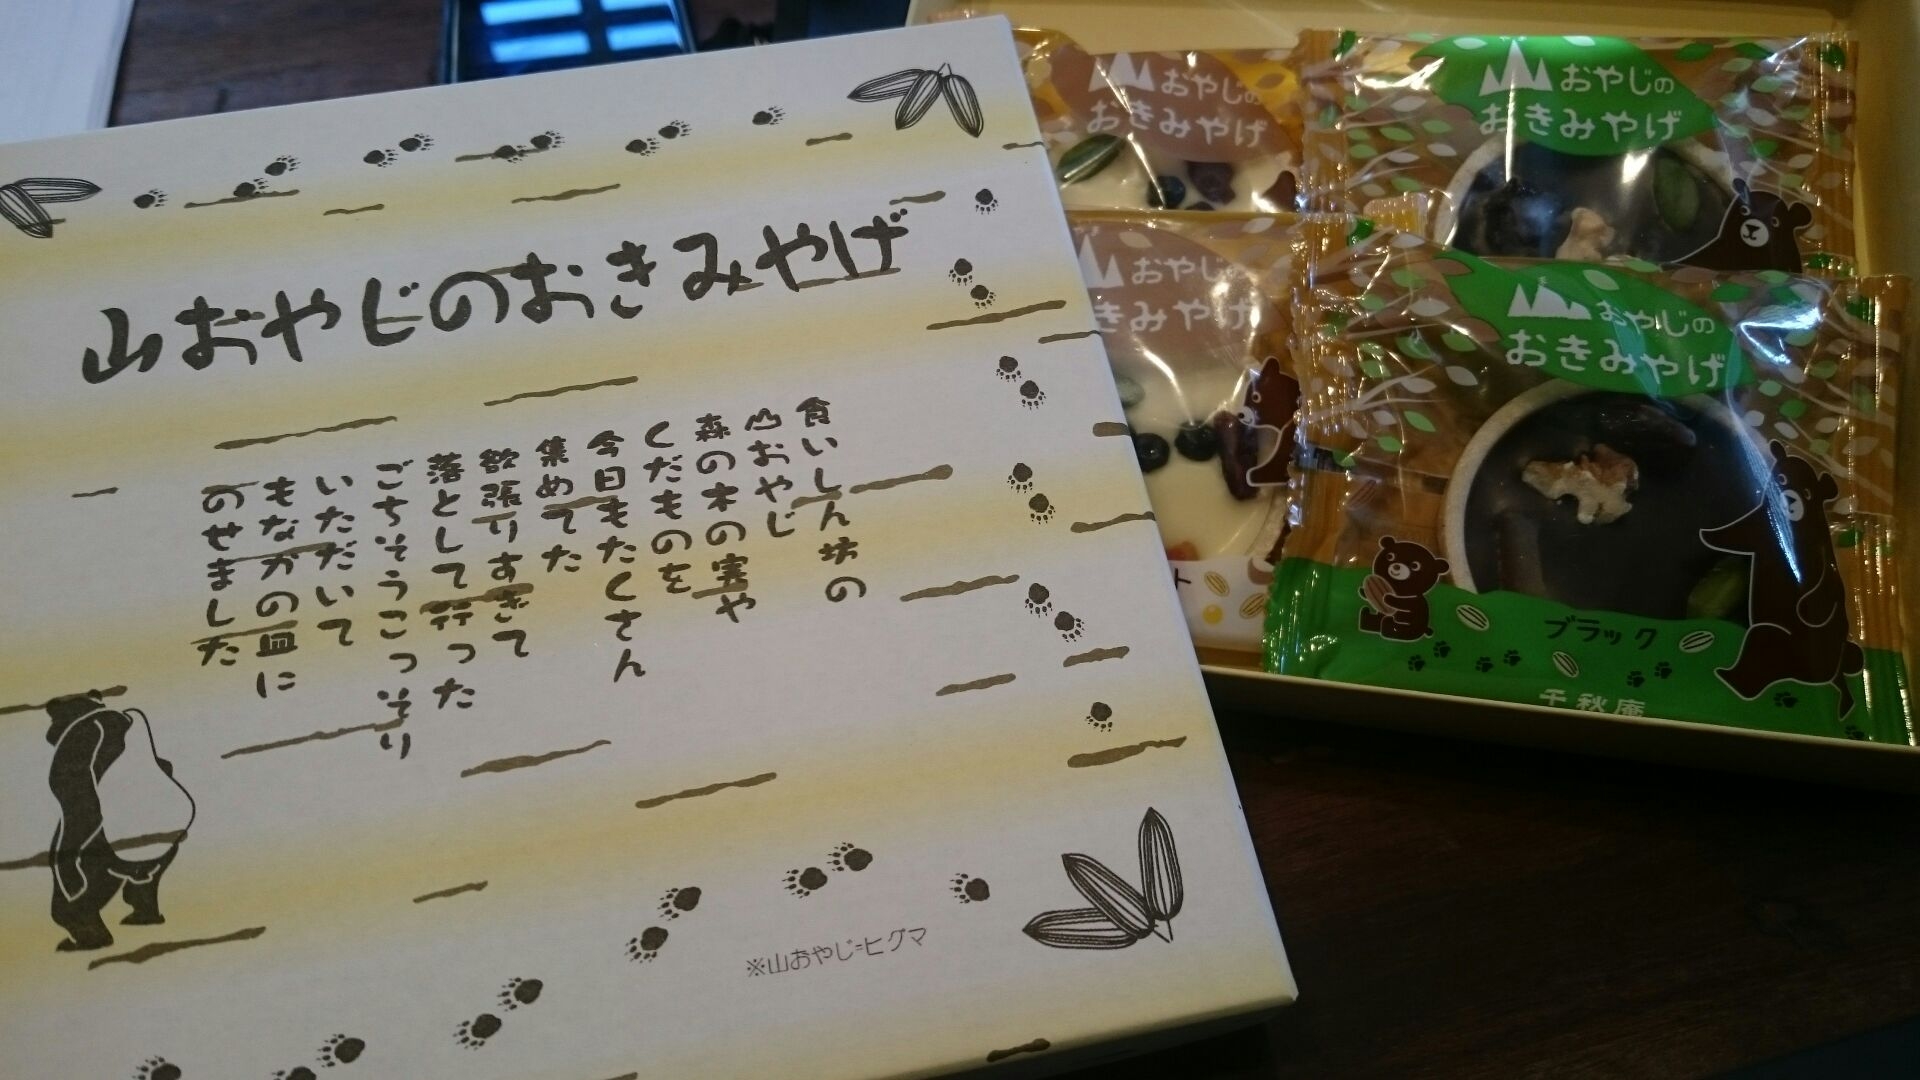 山おやじのおきみやげ
食いしん坊の
山おやじ
森の木の実や
くだものを
今日もたくさん
集めてた
欲張りすぎて
落として行った
ごちそうこっそり
いただいて
もなかの皿に
のせました
※山おやじ=ヒグマ
山おやじの
おきみやげ
山おやじの
おきみやげ
山おやじの
きみやげ
山おやじの
おきみやげ
ブラック
千秋庵
ト